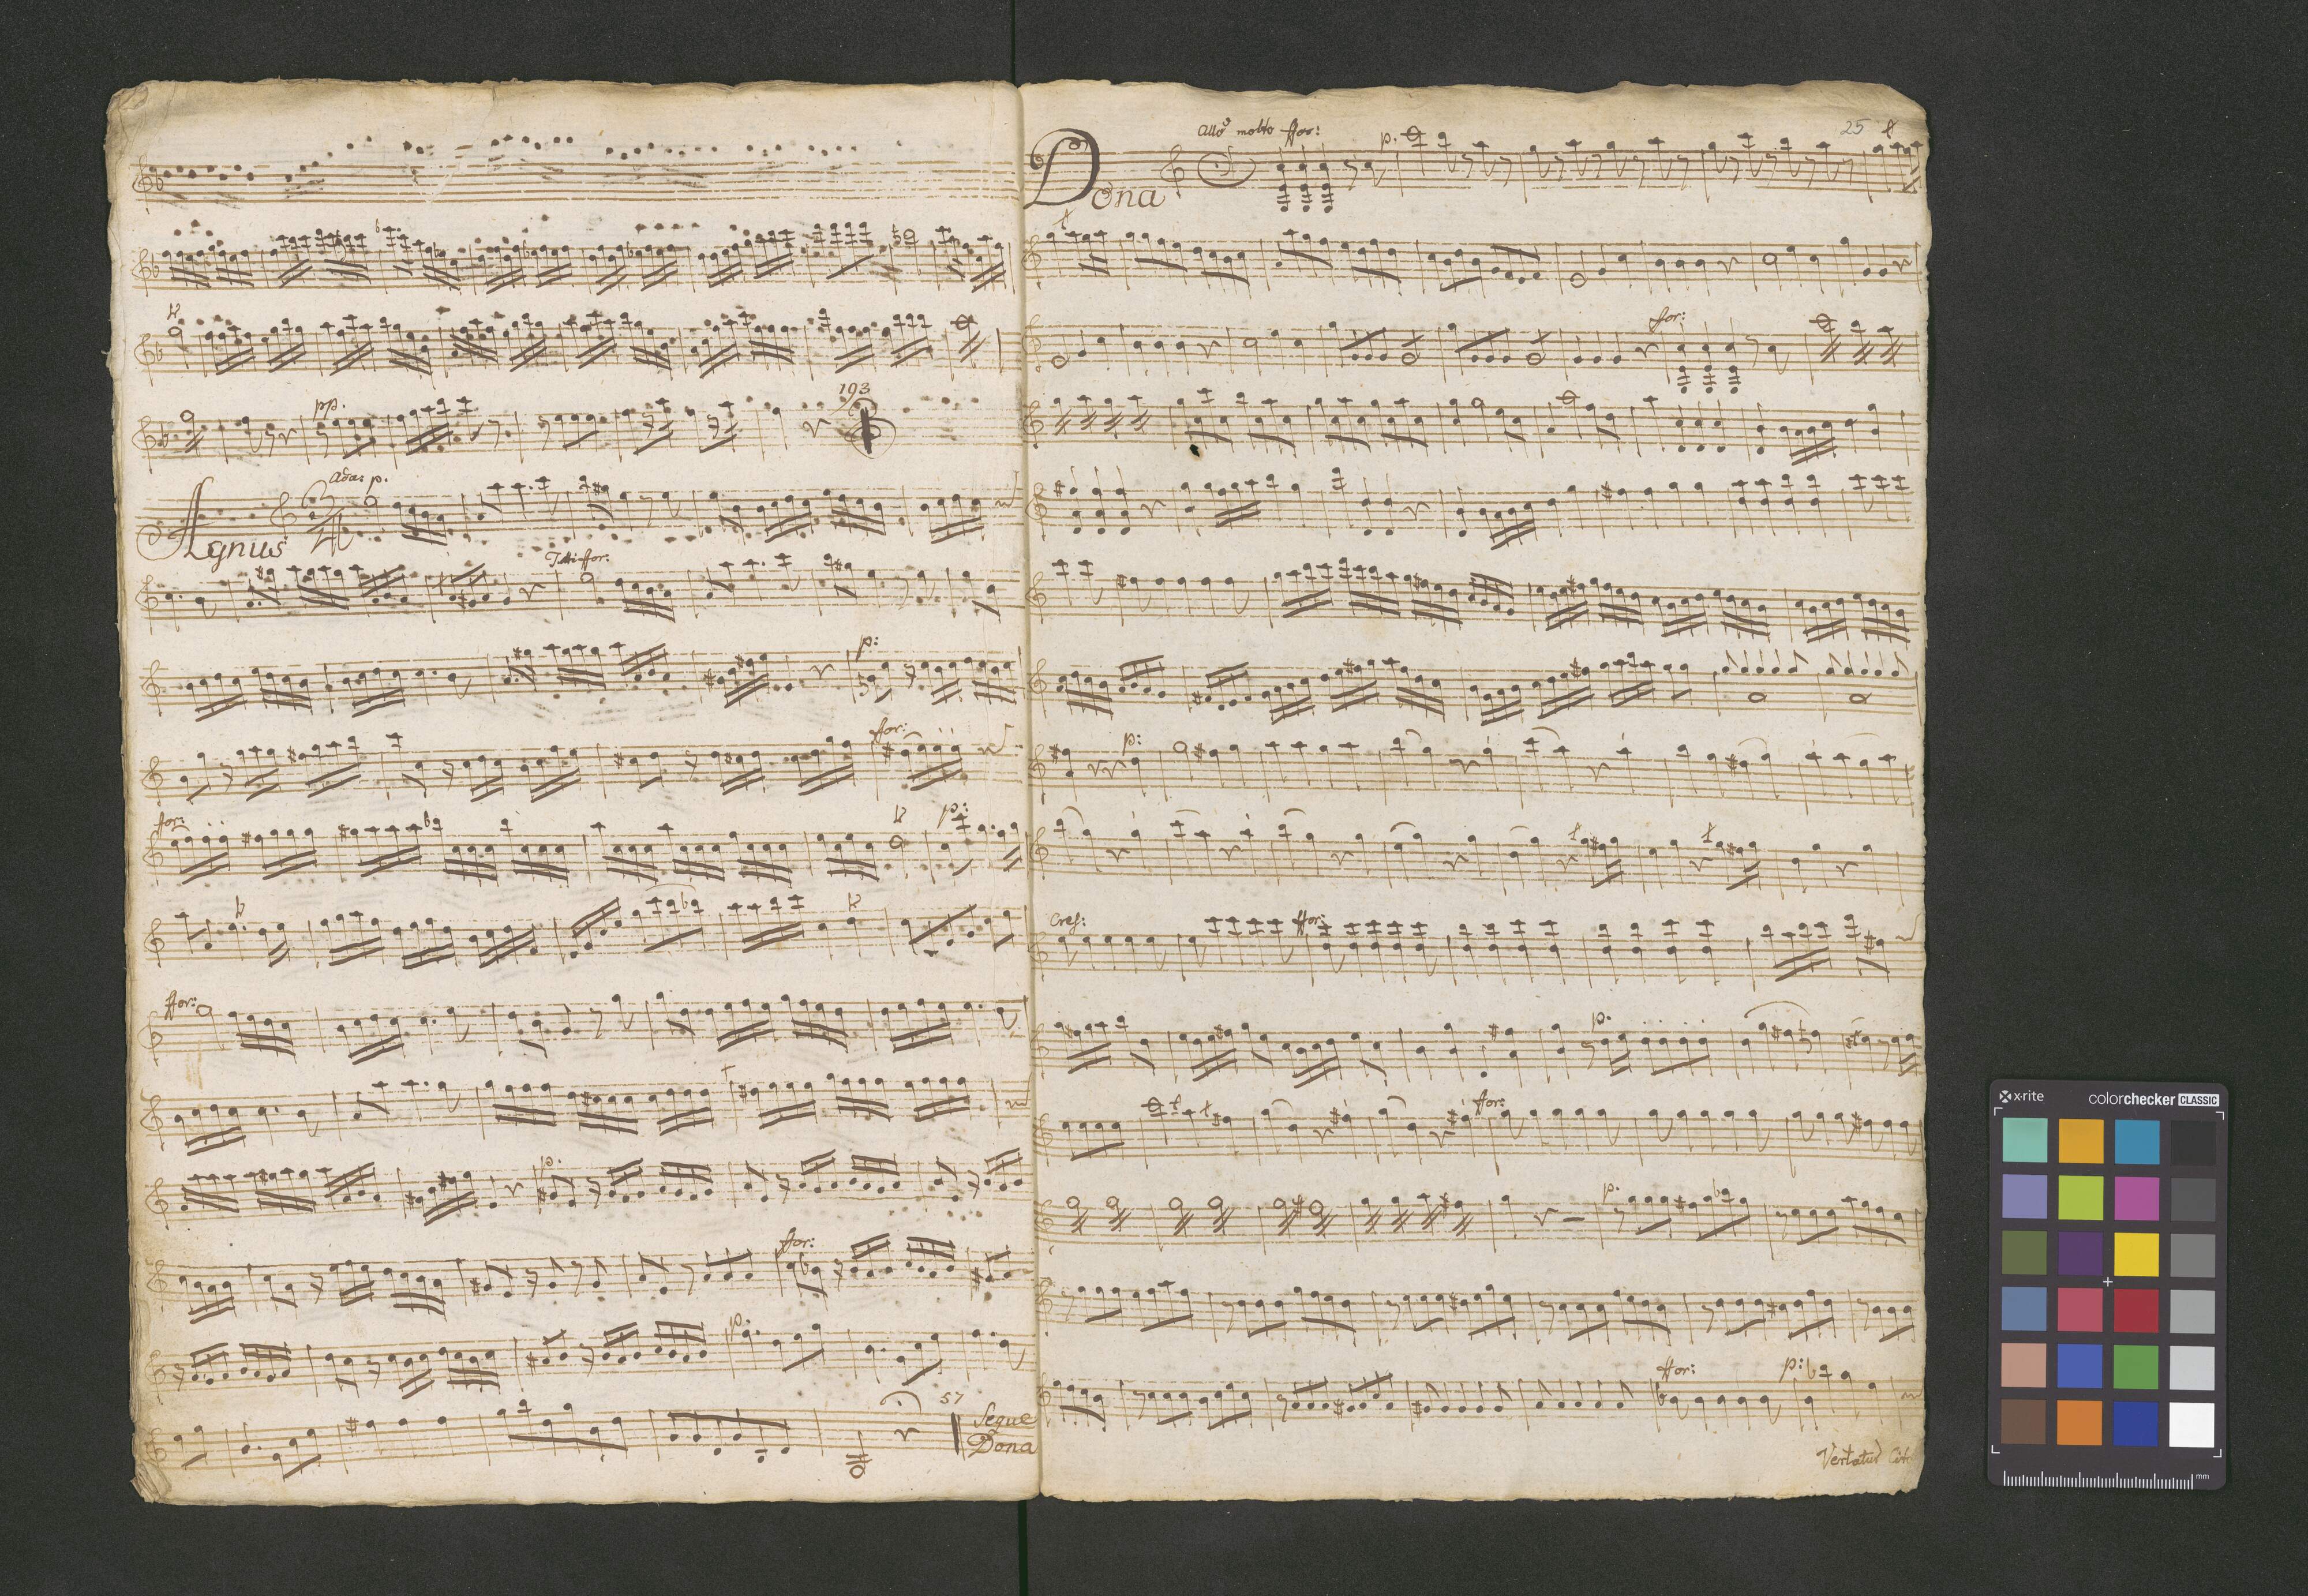 pp.
193
Ada: p.
Agnus
Tutti ffor:
p:
ffor:
for:
p:
ffor:
p.
ffor:
p.
57
Segue
Dona
25
Allo molto ffor: p.
Dona
for:
p:
Cres: ffor:
p.
ffor:
p.
ffor: p:
Vertatur Cito
x-rite colorchecker CLASSIC
mm